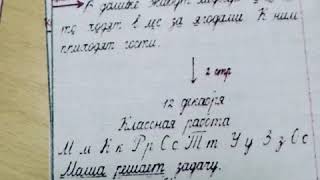 В домике живут
то ходят в лес за ягодами. К ним
приходят гости.
2 стр
12 декабря
Классная работа
М м К к Р р С с Т т У у З з О с
Маша решает задачу.